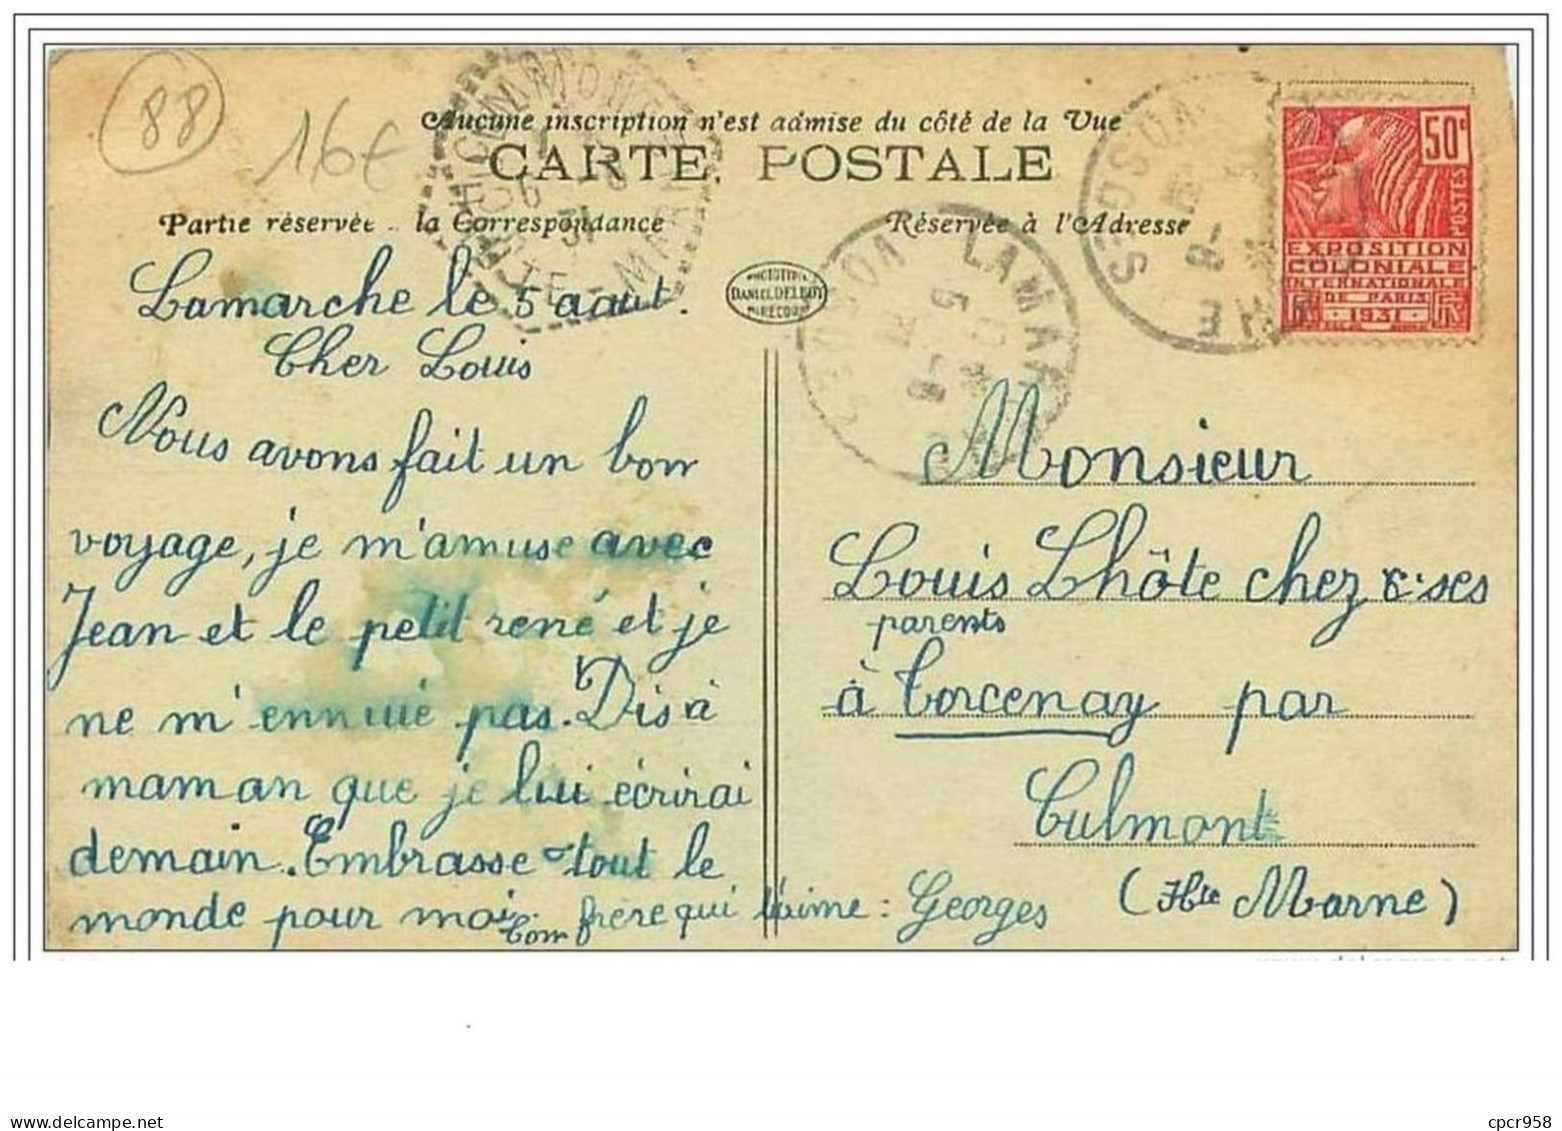 88
16€
Aucune inscription n'est admise du côté de la Vue
CARTE POSTALE
Partie réservée la Correspondance
Réservée à l'Adresse
50c
POSTES
EXPOSITION
COLONIALE
INTERNATIONALE
DE PARIS
1931
VOSGES
LAMAR
DANIEL DELBOY
MIRECOURT
Lamarche le 5 aout.
Cher Louis
Nous avons fait un bon
voyage, je m'amuse avec
Jean et le petit rené et je
ne m'ennuie pas. Dis à
maman que je lui écrirai
demain. Embrasse tout le
monde pour moi. Ton frère qui t'aime : Georges
Monsieur
Louis Lhôte chez ses
parents
à Torcenay par
Culmont
(Hte Marne)
cpcr958